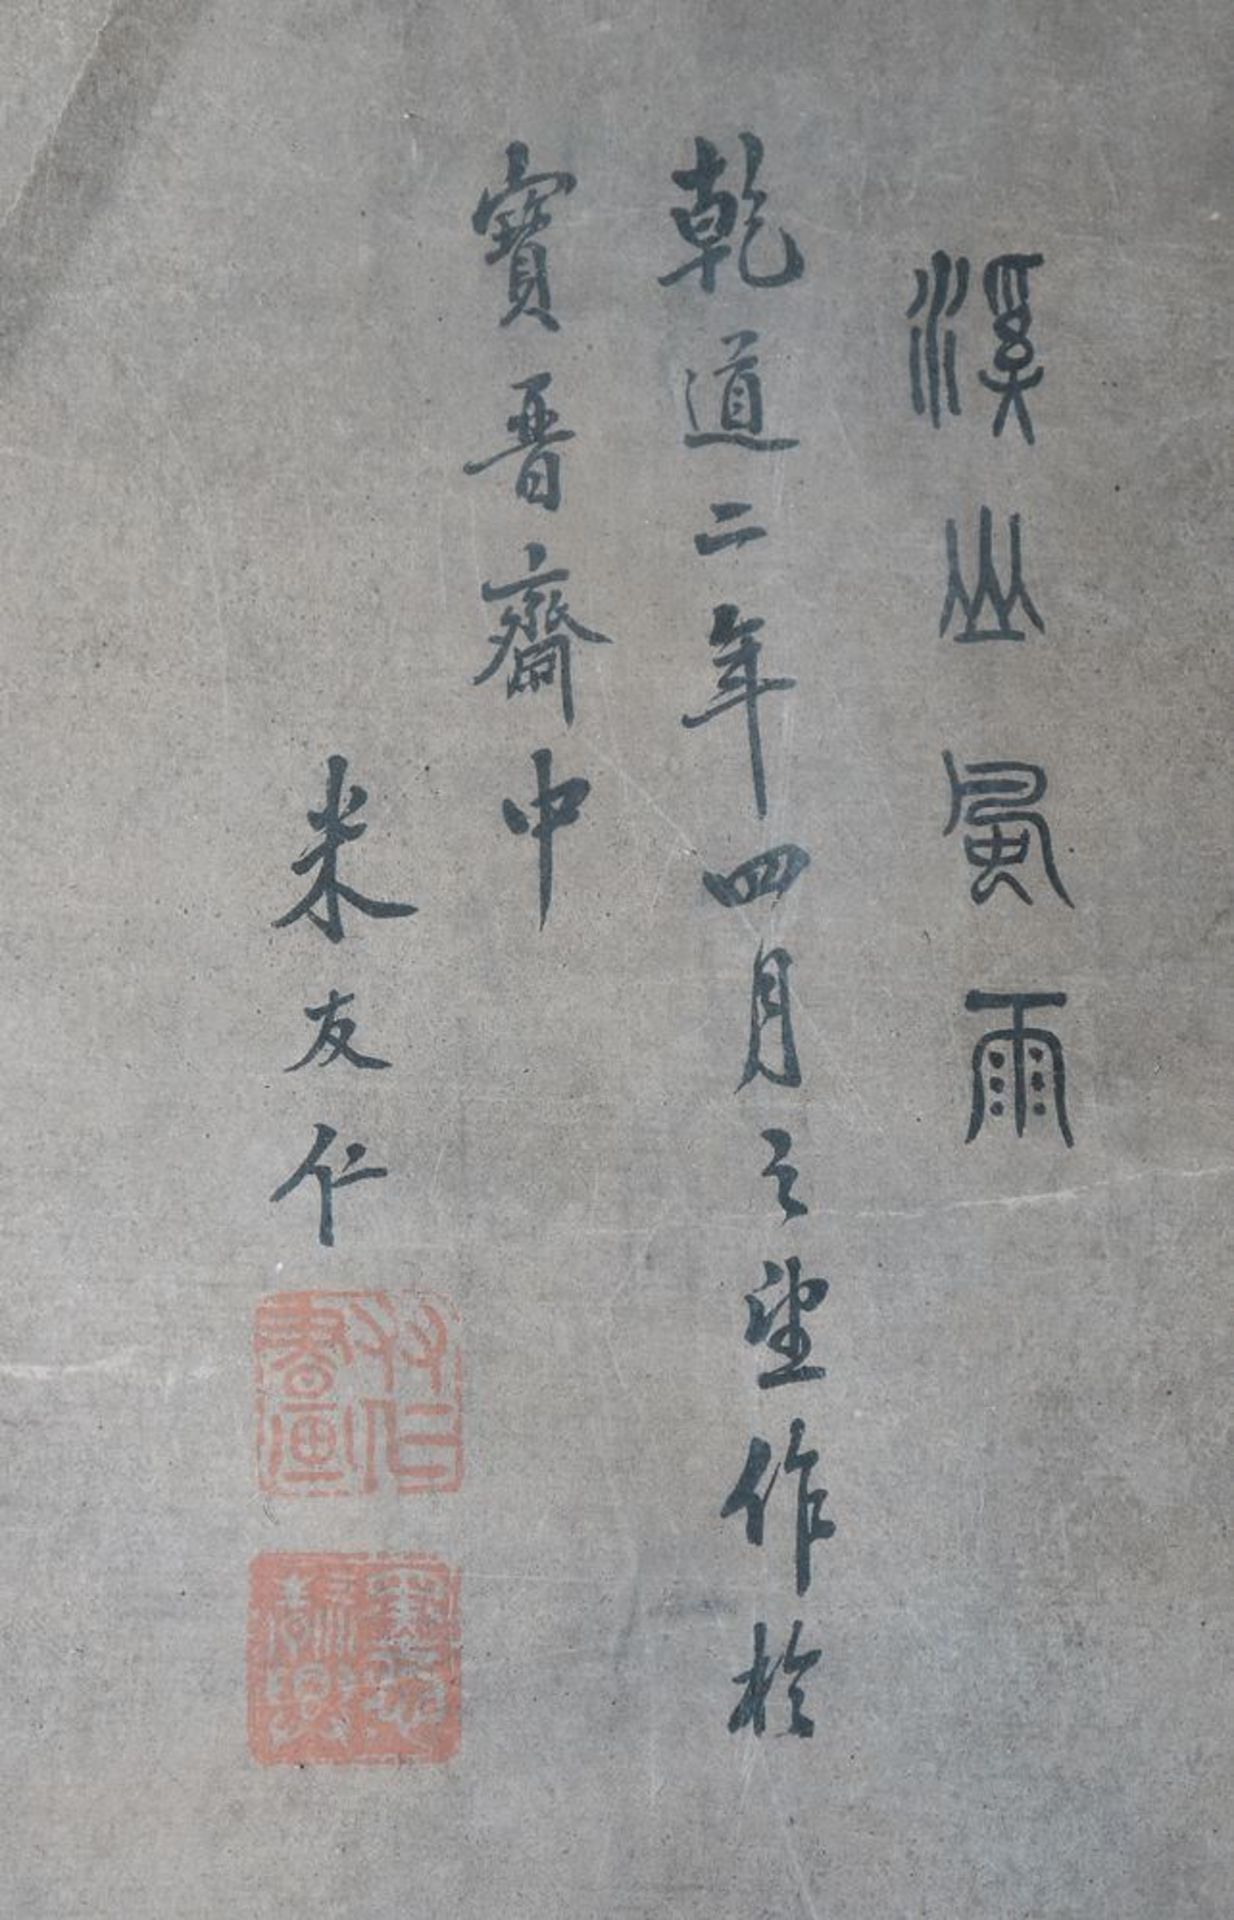 溪山風雨
乾道二年四月之望作於
寶晉齋中
米友仁
友仁
書画